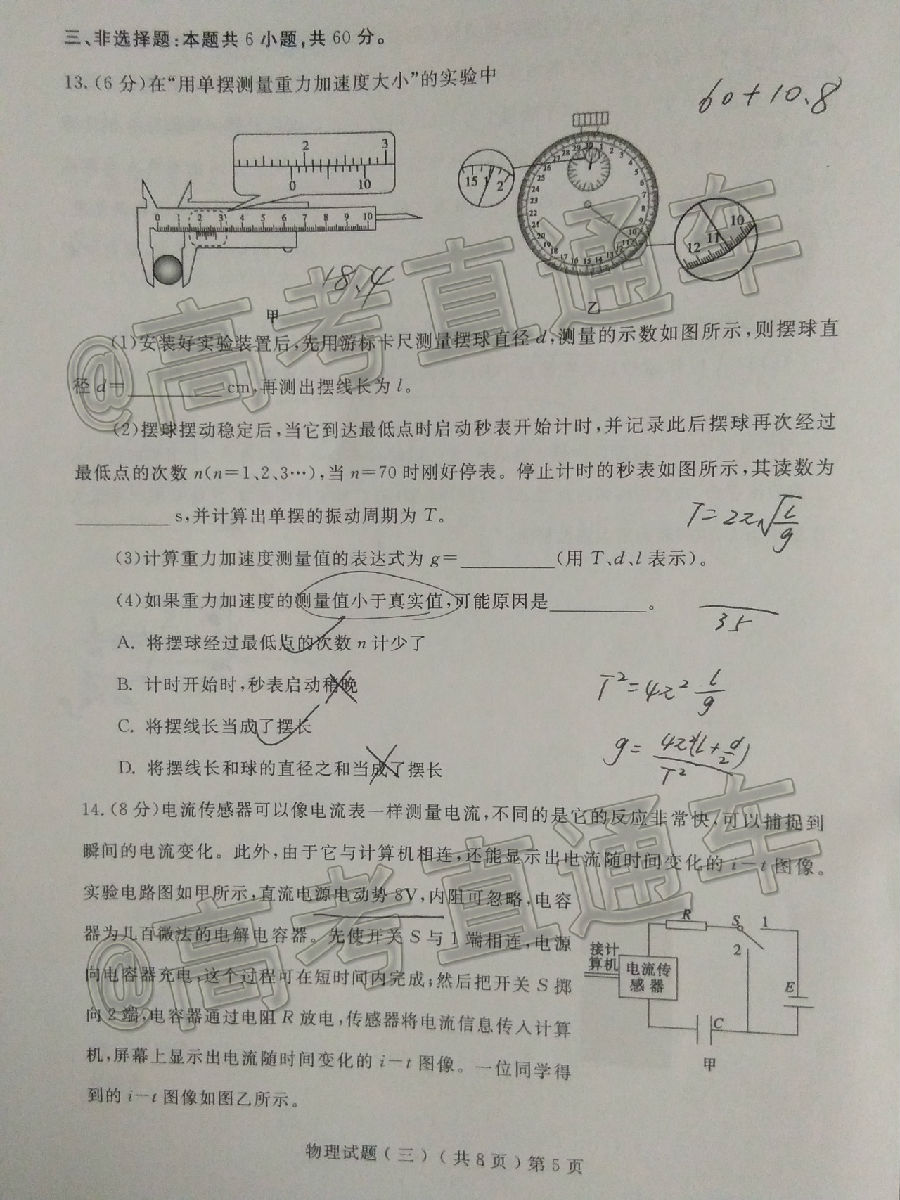 三、非选择题:本题共6小题,共60分。
13.(6分)在“用单摆测量重力加速度大小”的实验中
60+10.8
2 3
0 10
0 1 2 3 4 5 6 7 8 9 10
15 1 2
12 11 10
18.4
甲
乙
(1)安装好实验装置后,先用游标卡尺测量摆球直径d,测量的示数如图所示,则摆球直
径d=________cm,再测出摆线长为l。
(2)摆球摆动稳定后,当它到达最低点时启动秒表开始计时,并记录此后摆球再次经过
最低点的次数n(n=1、2、3…),当n=70时刚好停表。停止计时的秒表如图所示,其读数为
________s,并计算出单摆的振动周期为T。
T=2π√l/g
(3)计算重力加速度测量值的表达式为g=________(用T、d、l表示)。
(4)如果重力加速度的测量值小于真实值,可能原因是________。
35
A. 将摆球经过最低点的次数n计少了
B. 计时开始时,秒表启动稍晚
T²=4π² l/g
C. 将摆线长当成了摆长
g=4π²(l+d/2)/T²
D. 将摆线长和球的直径之和当成了摆长
14.(8分)电流传感器可以像电流表一样测量电流,不同的是它的反应非常快,可以捕捉到
瞬间的电流变化。此外,由于它与计算机相连,还能显示出电流随时间变化的i-t图像。
实验电路图如甲所示,直流电源电动势8V,内阻可忽略,电容
器为几百微法的电解电容器。先使开关S与1端相连,电源
向电容器充电,这个过程可在短时间内完成;然后把开关S掷
向2端,电容器通过电阻R放电,传感器将电流信息传入计算
机,屏幕上显示出电流随时间变化的i-t图像。一位同学得
到的i-t图像如图乙所示。
R S 1
2
接计
算机
电流传
感器
E
C
甲
物理试题(三)(共8页)第5页
@高考直通车
@高考直通车